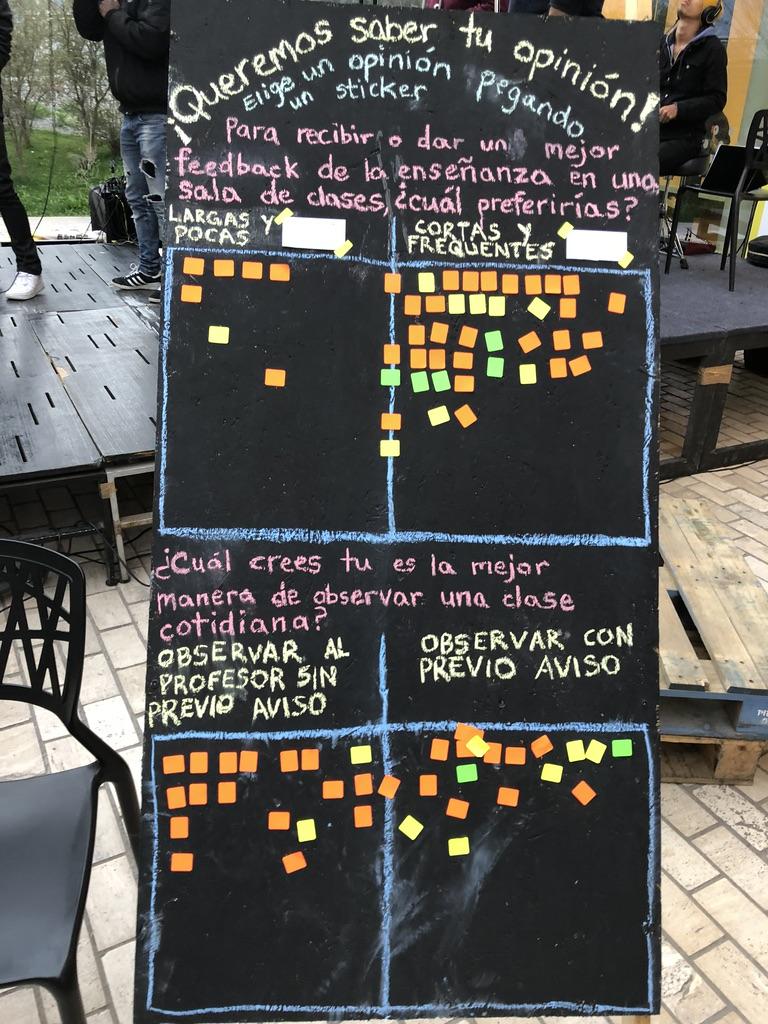 ¡Queremos saber tu opinión!
Elige un opinión pegando
un sticker
Para recibir o dar un mejor
feedback de la enseñanza en una
sala de clases, ¿cuál preferirías?
LARGAS Y
POCAS
CORTAS Y
FREQUENTES
¿Cuál crees tu es la mejor
manera de observar una clase
cotidiana?
OBSERVAR AL
PROFESOR SIN
PREVIO AVISO
OBSERVAR CON
PREVIO AVISO